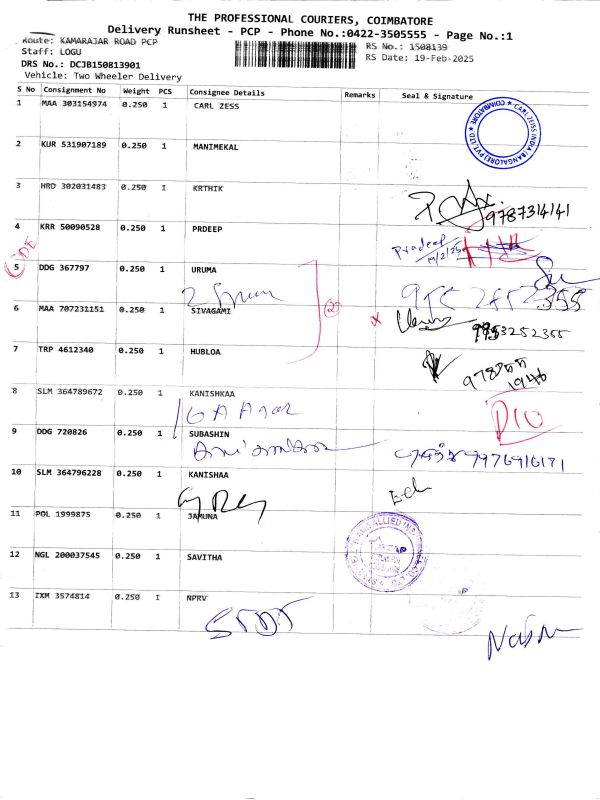 THE PROFESSIONAL COURIERS, COIMBATORE
Delivery Runsheet - PCP - Phone No.:0422-3505555 - Page No.:1
Route: KAMARAJAR ROAD PCP
RS No.: 1508139
Staff: LOGU
RS Date: 19-Feb-2025
DRS No.: DCJB150813901
Vehicle: Two Wheeler Delivery
S No Consignment No Weight PCS Consignee Details Remarks Seal & Signature
1 MAA 303154974 0.250 1 CARL ZESS
CARL ZEISS INDIA (BANGALORE) PVT. LTD. ★ COIMBATORE ★
2 KUR 531907189 0.250 1 MANIMEKAL
3 HRD 302031483 0.250 1 KRTHIK
9787314141
4 KRR 50090528 0.250 1 PRDEEP
Pradeep
5 DDG 367797 0.250 1 URUMA
6 MAA 707231151 0.250 1 SIVAGAMI
7 TRP 4612340 0.250 1 HUBLOA
8 SLM 364789672 0.250 1 KANISHKAA
9 DDG 720826 0.250 1 SUBASHIN
9976916171
10 SLM 364796228 0.250 1 KANISHAA
11 POL 1999875 0.250 1 JAMUNA
12 NGL 200037545 0.250 1 SAVITHA
13 IXM 3574814 0.250 1 NPRV